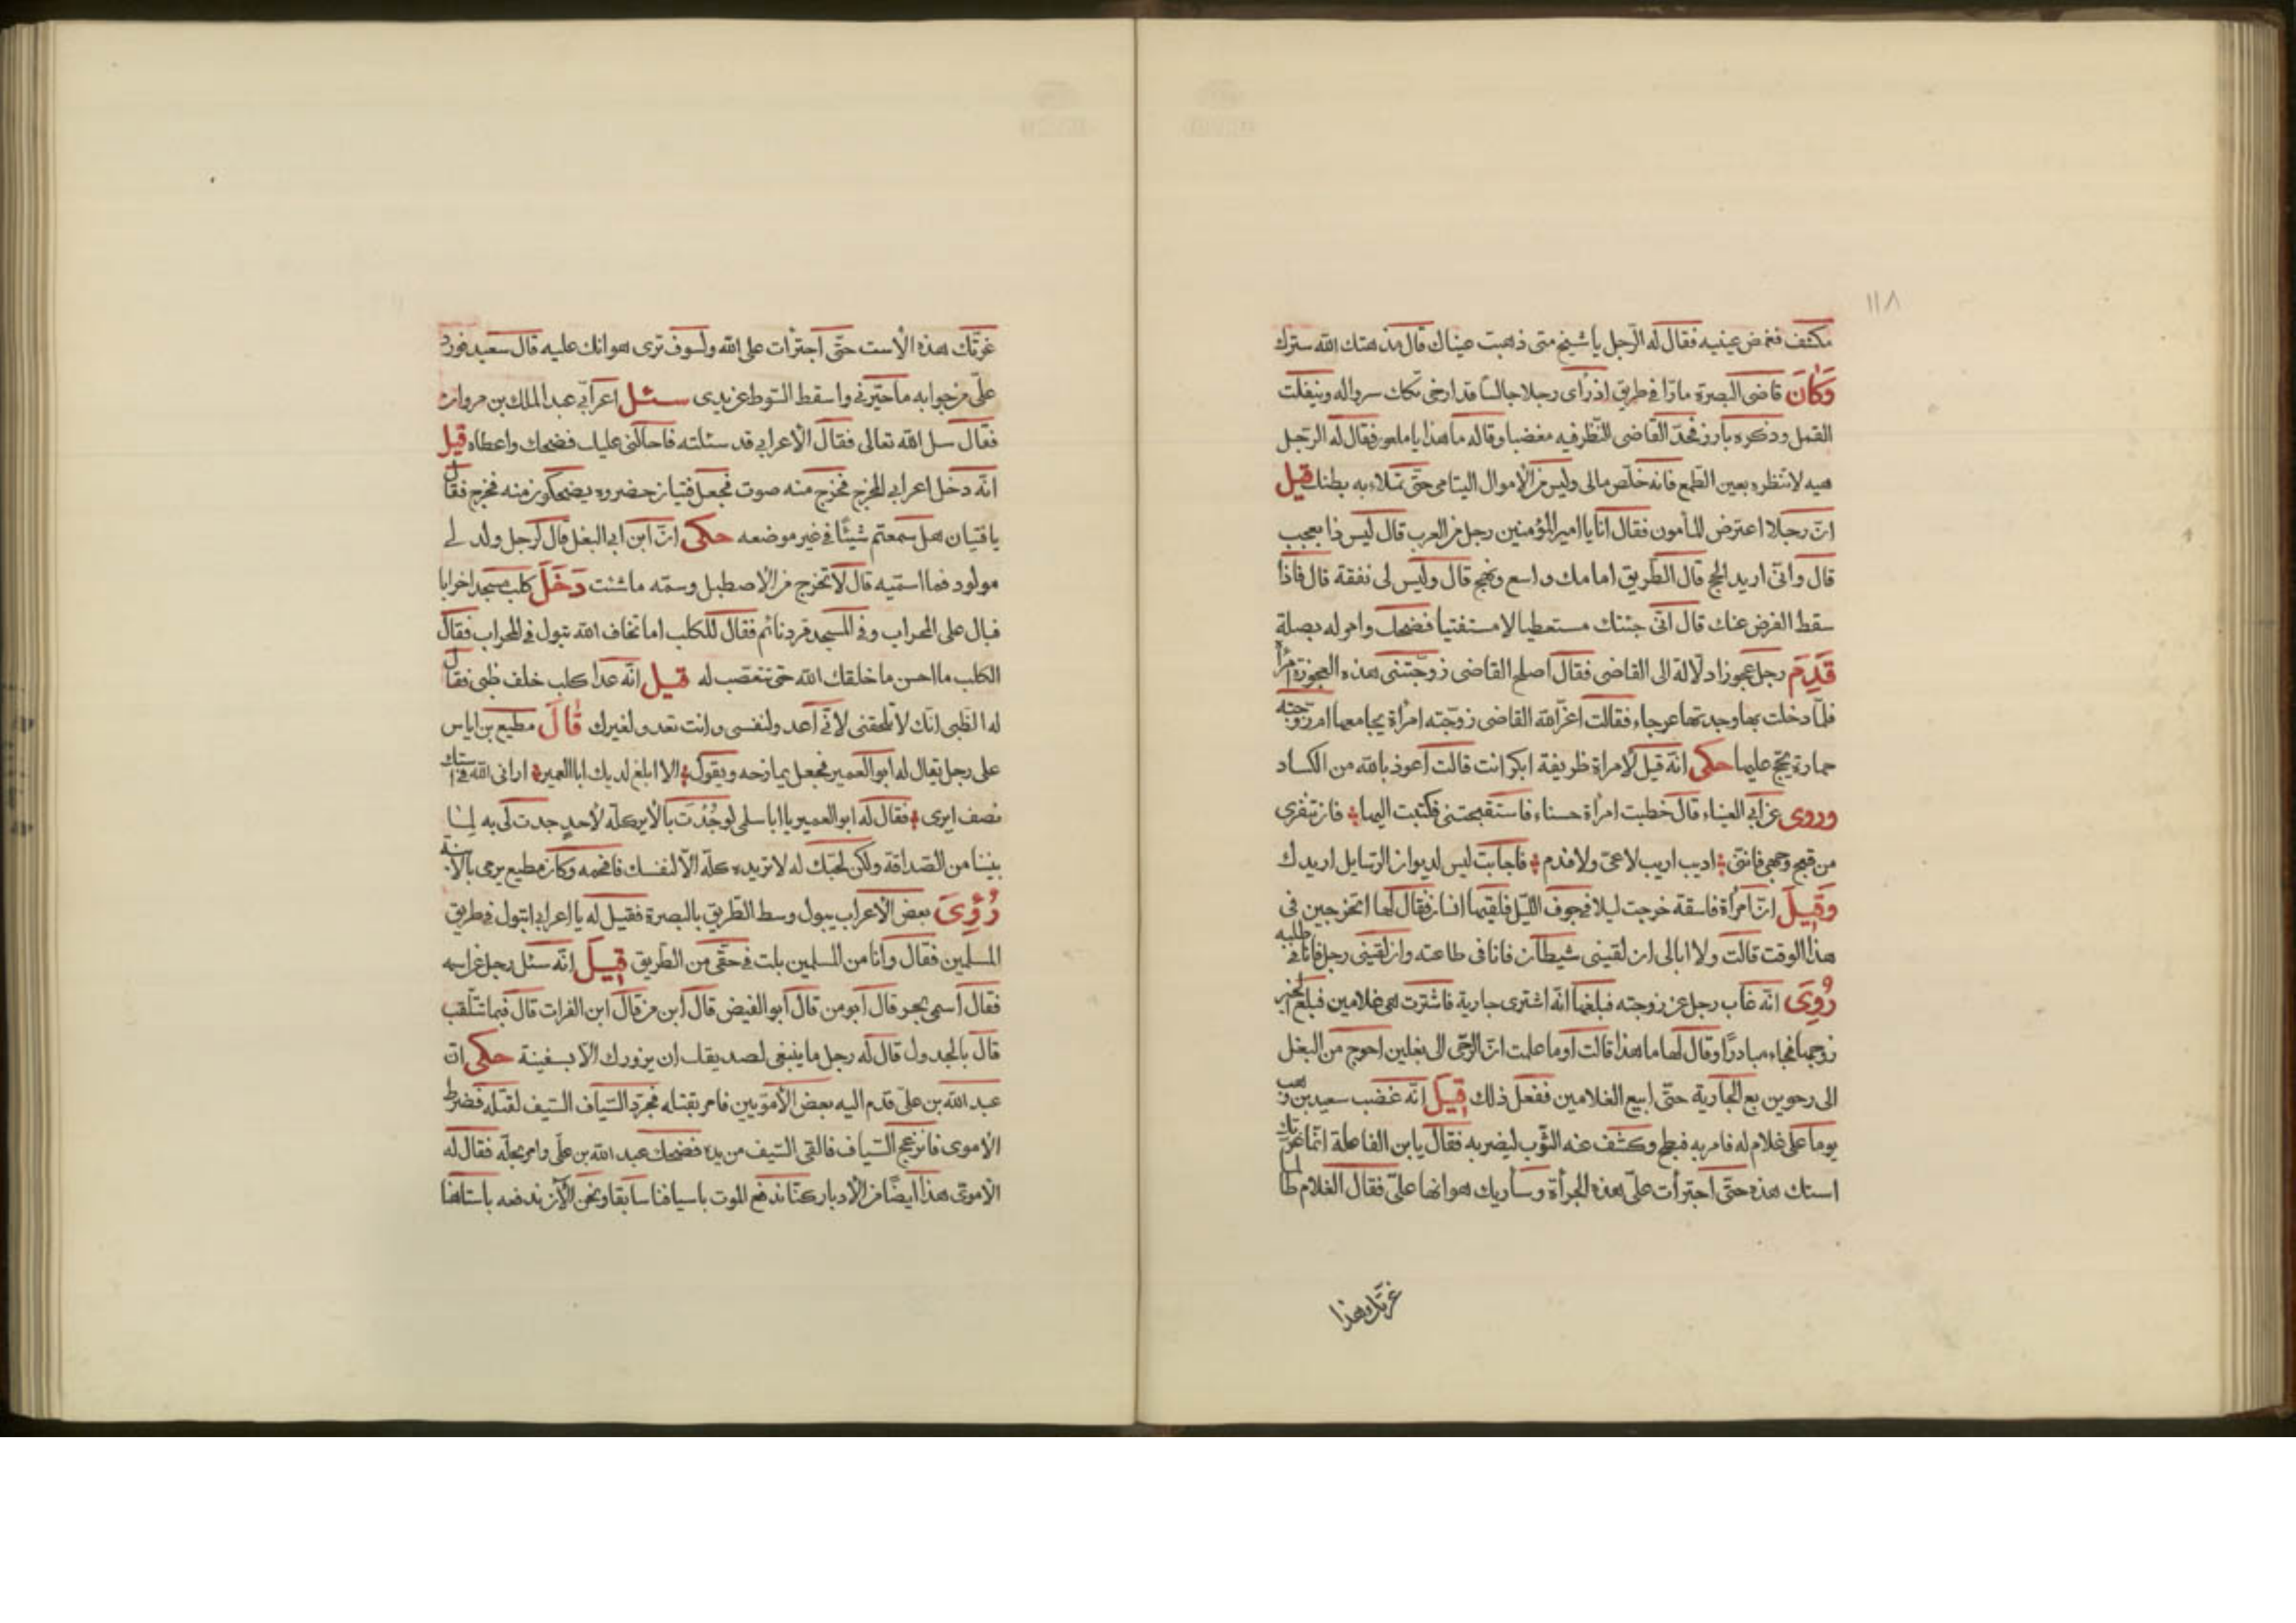 ١١٨
مكشف فغمض عينيه فقال له الرجل يا شيخ متى ذهبت عيناك قال مذ هتك الله سترك
وَكَانَ قاضى البصرة مارّا فى طريق اذ رأى رجلا جالسا قد ارخى تكك سرواله وينفلت
القمل وذكره بارز فحدّ القاضى النظر فيه مغضبا وقاله ما هذا يا ملعون فقال له الرّجل
هيه لا تنظره بعين الطمع فانه خلّص مالى وليس من الاموال اليتامى حتى تملاء به بطنك قيل
انّ رجلا اعترض للمأمون فقال انا يا امير المؤمنين رجل من العرب قال ليس ذا بعجب
قال وانّى اريد الحج قال الطّريق امامك واسع ونهج قال وليس لى نفقة قال فاذا
سقط الفرض عنك قال انّى جئتك مستعطيا لا مستفتيا فضحك وامر له بصلة
قَدِمَ رجل عجوزا دلّالة الى القاضى فقال اصلح القاضى زوّجتنى هذه العجوزة امرأ
فلمّا دخلت بها وجدتها عرجاء فقالت اعزّ الله القاضى زوّجته امرأة يجامعها ام زوّجته
حمارة يحجّ عليها حكى انّه قيل لامراة ظريفة ابكر انت قالت اعوذ بالله من الكساد
وروى عن ابى العيناء قال خطبت امرأة حسناء فاستقبحتنى فكتبت اليها فان تنفرى
من قبح وجهى فانّنى اديب اريب لا عىّ ولا فدم فاجابت ليس لديوان الرسايل اريدك
وَقِيلَ انّ امرأة فاسقة خرجت ليلا فى جوف اللّيل فلقيها انسان فقال لها اتخرجين فى
هذا الوقت قالت ولا ابالى ان لقينى شيطان فانا فى طاعته وان لقينى رجل فانا فى طلبه
رُوِىَ انّه غاب رجل عن زوجته فبلغها انّه اشترى جارية فاشترت هى غلامين فبلغ الخبر
زوجها فجاء مبادرًا وقال لها ما هذا قالت اوما علمت انّ الرّحى الى بغلين احوج من البغل
الى رحوين بع الجارية حتّى ابيع الغلامين ففعل ذلك قِيلَ انّه غضب سعيد بن وهب
يوما على غلام له فامر به فبطح وكشف عنه الثّوب ليضربه فقال يا بن الفاعلة انّما غرّتك
استك هذه حتّى اجترأت علىّ هذه الجرأة وسأريك هوانها علىّ فقال الغلام طالما
غرّتك هذا
غرّتك هذه الأست حتّى اجترأت على الله ولسوف ترى هوانك عليه قال سعيد فورد
علىّ من جوابه ما حيّرنى واسقط السّوط عن يدى سئل اعرابىّ عبد الملك بن مروان
فقال سل الله تعالى فقال الأعرابى قد سئلته فاحالنى عليك فضحك واعطاه قيل
انّه دخل اعرابى المخرج فخرج منه صوت فجعل فتيان حضروه يضحكون منه فخرج فقال
يا فتيان هل سمعتم شيئًا فى غير موضعه حكى انّ ابن ابى البغل قال لرجل ولد لى
مولود فما اسمّيه قال لا تخرج من الاصطبل وسمّه ما شئت دَخَلَ كلب مسجدا خرابا
فبال على المحراب وفى المسجد قرد نائم فقال للكلب اما تخاف الله تبول فى المحراب فقال
الكلب ما احسن ما خلقك الله حتى تتعصّب له قيل انّه عدا كلب خلف ظبى فقال
له الظّبى انّك لا تلحقنى لانّى اعدو لنفسى وانت تعدو لغيرك قَالَ مطيع بن اياس
على رجل يقال له ابو العمير فجعل يمازحه ويقول الا ابلغ لديك ابا العمير ارانى الله فى استك
نصف ايرى فقال له ابو العمير يا ابا سلمى لو جُدْتَ بالأير كلّه لأحدٍ جدت لى به لما
بيننا من الصّداقة ولكن لحبّك له لا تريده كلّه الّا لنفسك فافحمه وكان مطيع يرمى بالأبنة
رُؤِىَ بعض الاعراب يبول وسط الطّريق بالبصرة فقيل له يا اعرابى اتبول فى طريق
المسلمين فقال وانا من المسلمين بلت فى حقّى من الطّريق قِيلَ انّه سئل رجل عن اسمه
فقال اسمى بحر قال ابو من قال ابو الفيض قال ابن من قال ابن الفرات قال فبما تتلقب
قال بالجدول قال له رجل ما ينبغى لصديقك ان يزورك الّا بسفينة حكى انّ
عبد الله بن علىّ قدم اليه بعض الأمويّين فامر بقتله فجرّد السّياف السّيف لقتله فضرط
الأموى فانزعج السّياف فالقى السّيف من يده فضحك عبد الله بن علّى وامر بخلّه فقال له
الأموىّ هذا ايضًا من الأدبار كنّا ندفع الموت باسيافنا سابقا ونحن الآن ندفعه باستاهنا